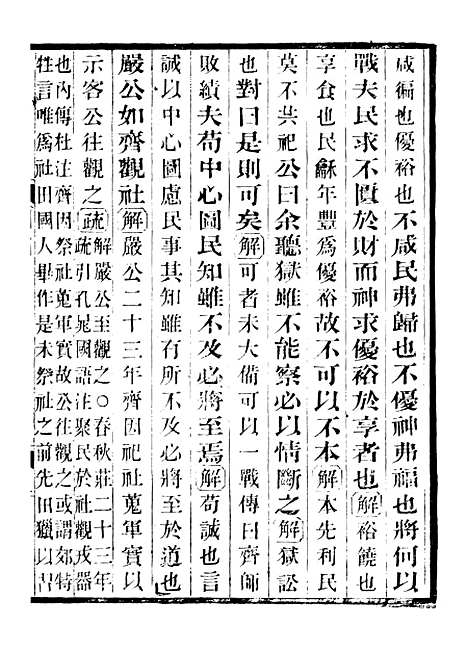 咸徧也優裕也不咸民弗歸也不優神弗福也將何以
戰夫民求不匱於財而神求優裕於享者也解裕饒也
享食也民龢年豐爲優裕故不可以不本解本先利民
莫不共祀公曰余聽獄雖不能察必以情斷之解獄訟
也對曰是則可矣解可者未大備可以一戰傳曰齊師
敗績夫苟中心圖民知雖不及必將至焉解苟誠也言
誠以中心圖慮民事其知雖有所不及必將至於道也
嚴公如齊觀社解嚴公二十三年齊因祀社蒐軍實以
示客公往觀之疏解嚴公至觀之○春秋莊二十三年
疏引孔晁國語注聚民於社觀戎器
也內傳杜注齊因祭社蒐軍實故公往觀之或謂郊特
牲言唯爲社田國人畢作是未祭社之前先田獵以習